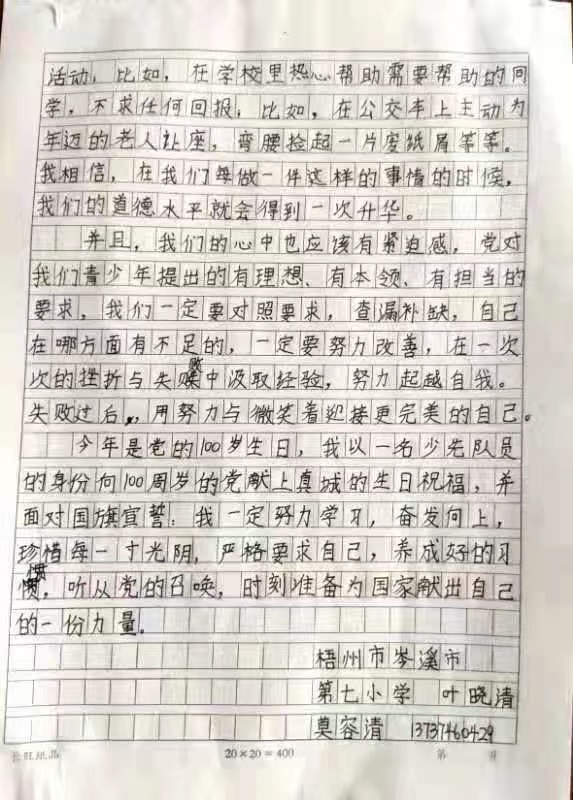 活动，比如，在学校里热心帮助需要帮助的同
学，不求任何回报；比如，在公交车上主动为
年迈的老人让座，弯腰捡起一片废纸屑等等。
我相信，在我们每做一件这样的事情的时候，
我们的道德水平就会得到一次升华。
并且，我们的心中也应该有紧迫感，党对
我们青少年提出的有理想、有本领、有担当的
要求，我们一定要对照要求，查漏补缺，自己
在哪方面有不足的，一定要努力改善，在一次
次的挫折与失败中汲取经验，努力超越自我。
失败过后，用努力与微笑着迎接更完美的自己。
今年是党的100岁生日，我以一名少先队员
的身份向100周岁的党献上真诚的生日祝福，并
面对国旗宣誓：我一定努力学习，奋发向上，
珍惜每一寸光阴，严格要求自己，养成好的习
惯，听从党的召唤，时刻准备为国家献出自己
的一份力量。
梧州市岑溪市
第七小学 叶晓清
莫容清 13737460429
长旺纸品 20×20=400 第 页